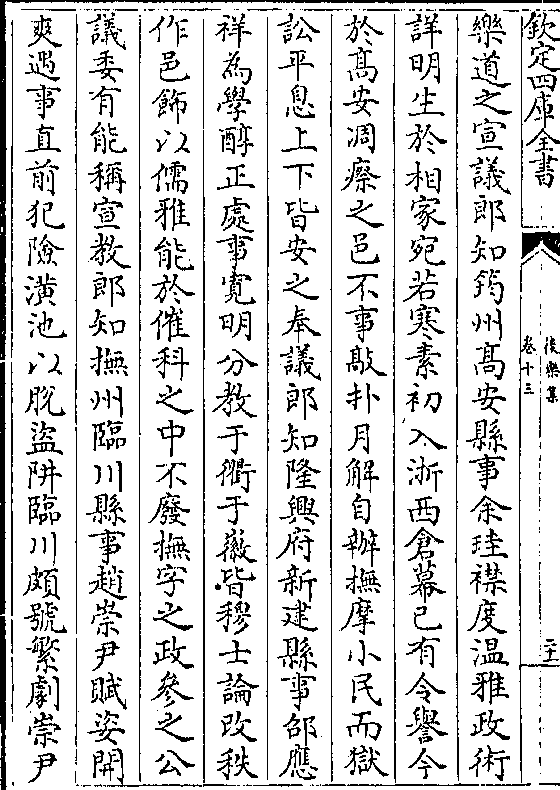 欽定四庫全書
後樂集
卷十三
二十
樂道之宣議郎知筠州髙安縣事余珪襟度温雅政術
詳明生於相家宛若寒素初入浙西倉幕已有令譽今
於髙安凋瘵之邑不事敲扑月解自辦撫摩小民而獄
訟平息上下皆安之奉議郎知隆興府新建縣事邵應
祥為學醇正處事寛明分教于衢于徽皆穆士論改秩
作邑飾以儒雅能於催科之中不廢撫字之政參之公
議委有能稱宣教郎知撫州臨川縣事趙崇尹賦姿開
爽遇事直前犯險潢池以脱盜阱臨川頗號繁劇崇尹